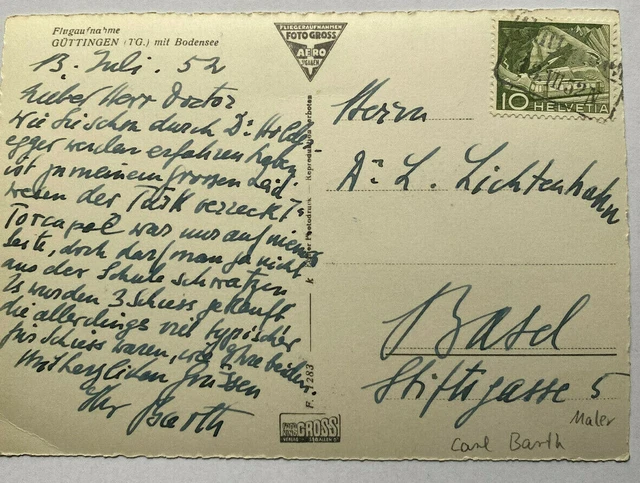 Flugaufnahme
GÜTTINGEN (TG.) mit Bodensee
13. Juli. 52
Lieber Herr Doctor
Wie Sie schon durch Dr.
egger werden erfahren haben
ist zu meinem grossen Leid
wesen der
war nur auf meiner
Seite, doch darf man ja nicht
aus der Schule schwatzen
Es wurden 3 gekauft
die allerdings viel typischer
für waren, wie Ihre beiden.
Mit herzlichen Grüssen
Ihr Barth
FLIEGERAUFNAHMEN
FOTO GROSS
AERO
ST. GALLEN
Reproduktion verboten
Photodruck
F. 1283
GROSS
VERLAG ST. GALLEN
10 HELVETIA
Herrn
Dr. L. Lichtenhahn
Basel
Stiftsgasse 5
Maler
Carl Barth